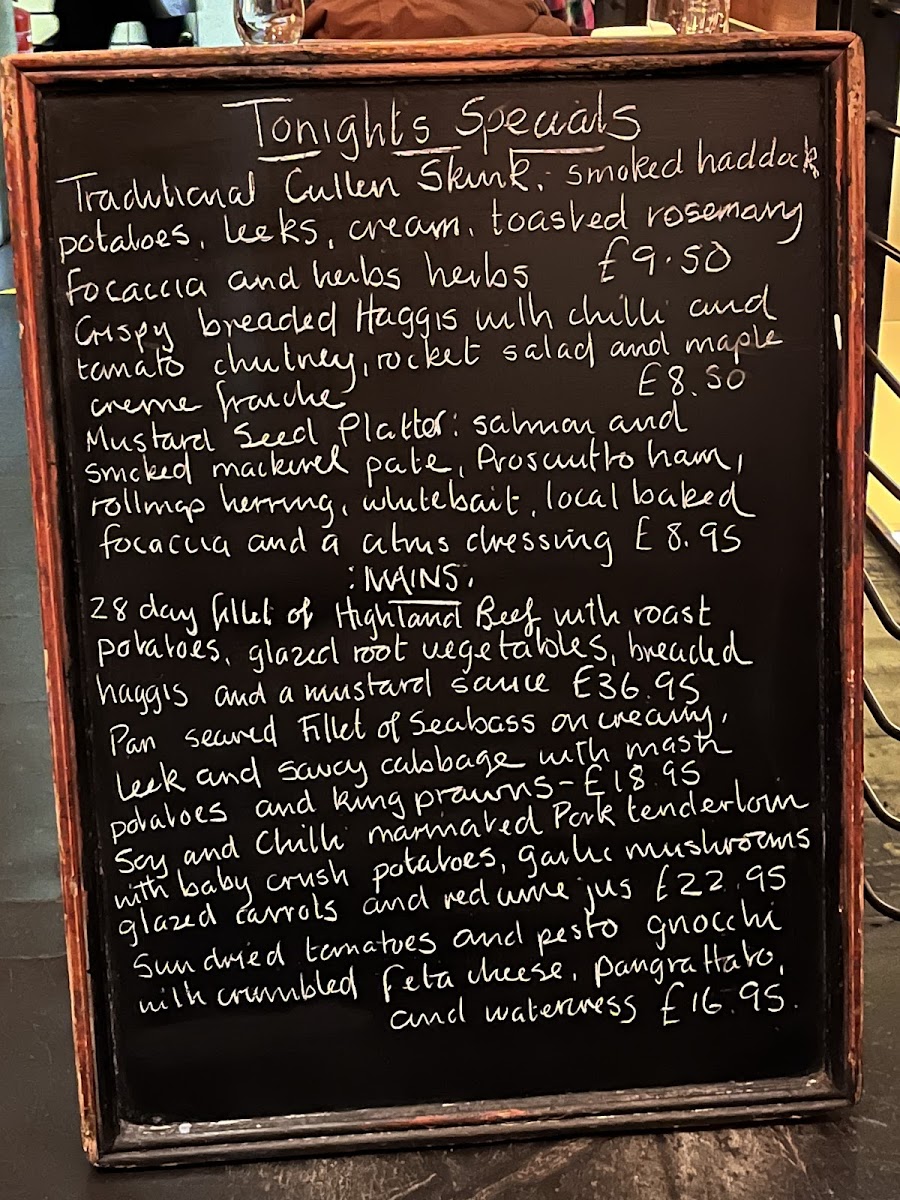 Tonights Specials
Traditional Cullen Skink: smoked haddock
potatoes, leeks, cream, toasted rosemary
focaccia and herbs herbs £9.50
Crispy breaded Haggis with chilli and
tomato chutney, rocket salad and maple
creme fraiche £8.50
Mustard Seed Platter: salmon and
smoked mackerel pate, Proscuitto ham,
rollmop herring, whitebait, local baked
focaccia and a citrus dressing £8.95
:MAINS.
28 day fillet of Highland Beef with roast
potatoes, glazed root vegetables, breaded
haggis and a mustard sauce £36.95
Pan seared Fillet of Seabass on creamy,
leek and savoy cabbage with mash
potatoes and king prawns - £18.95
Soy and Chilli marinated Pork tenderloin
with baby crush potatoes, garlic mushrooms
glazed carrots and red wine jus £22.95
Sun dried tomatoes and pesto gnocchi
with crumbled feta cheese, pangrattato,
and watercress £16.95.